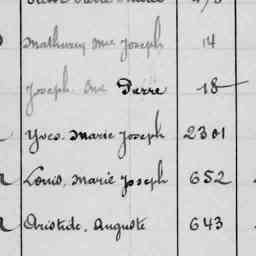 Mathurin Mie Joseph 14
Joseph Me Pierre 18
Yves. Marie Joseph 2301
Louis, Marie Joseph 652
Aristide, Auguste 643